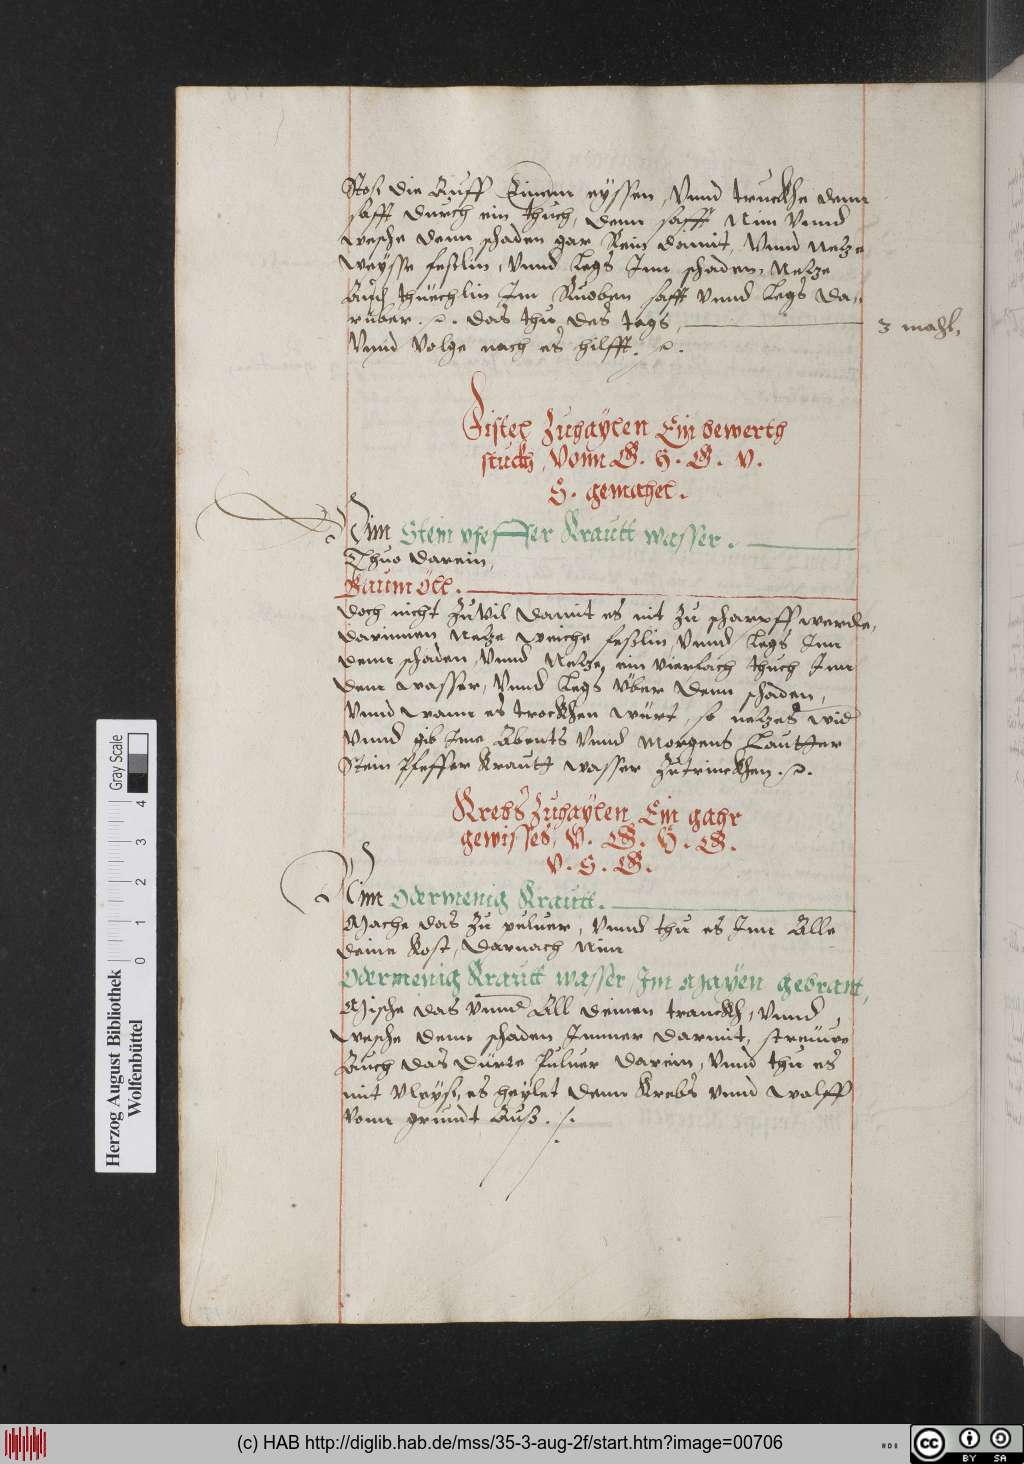 Stos die Auff Einem eyssen, Vnnd truckhe denn
safft durch ein thuch, denn safft Nim Vnnd
wesche denn schaden gar Rein damit, Vnnd Netze
weysse feslin, Vnnd Legs Inn schaden, Netze
Auch thüechlin Im Ruoben safft Vnnd Legs da„
rüber. das thu des tags, 3 mahl,
Vnnd Volge nach es hilfft.
Fistel Zuhaylen Ein bewerth
stuckh, Vonn G. H. G. V.
H. gemahel.
Nim Stein pfeffer Krautt wasser.
Thuo darein,
Baumöll.
doch nicht Zu Vil damit es nit zu scharpff werde,
darinnen Netze weiche feslin, Vnnd Legs Inn
denn schaden, Vnnd Netze, ein vierfach thuch Inn
dem wasser, Vnnd Legs über denn schaden,
Vnnd wann es trockhen würt, so netzes wid
Vnnd gib Ime Abents Vnnd Morgens Lautter
Stein Pfeffer Krautt wasser Zutrinckhen.
Krebs Zuhaylen, Ein gahr
gewisses, V. G. H. G.
V. H. G.
Nim Odermenig Krautt.
Mache das Zu puluer, Vnnd thu es Inn Alle
deine Kost, Darnach Nim
Odermenig Krautt wasser, Im Mayen gebrant,
Mische das Vnnd All deinen tranckh, Vnnd
wesche denn schaden Immer darmit, streuwe
Auch das dürre Puluer darein, Vnnd thu es
mit Vleys, es heylet denn Krebs Vnnd wolff
Vonn grundt Aus.
Herzog August Bibliothek
Wolfenbüttel
0 1 2 3 4
Gray Scale
(c) HAB http://diglib.hab.de/mss/35-3-aug-2f/start.htm?image=00706
cc BY SA